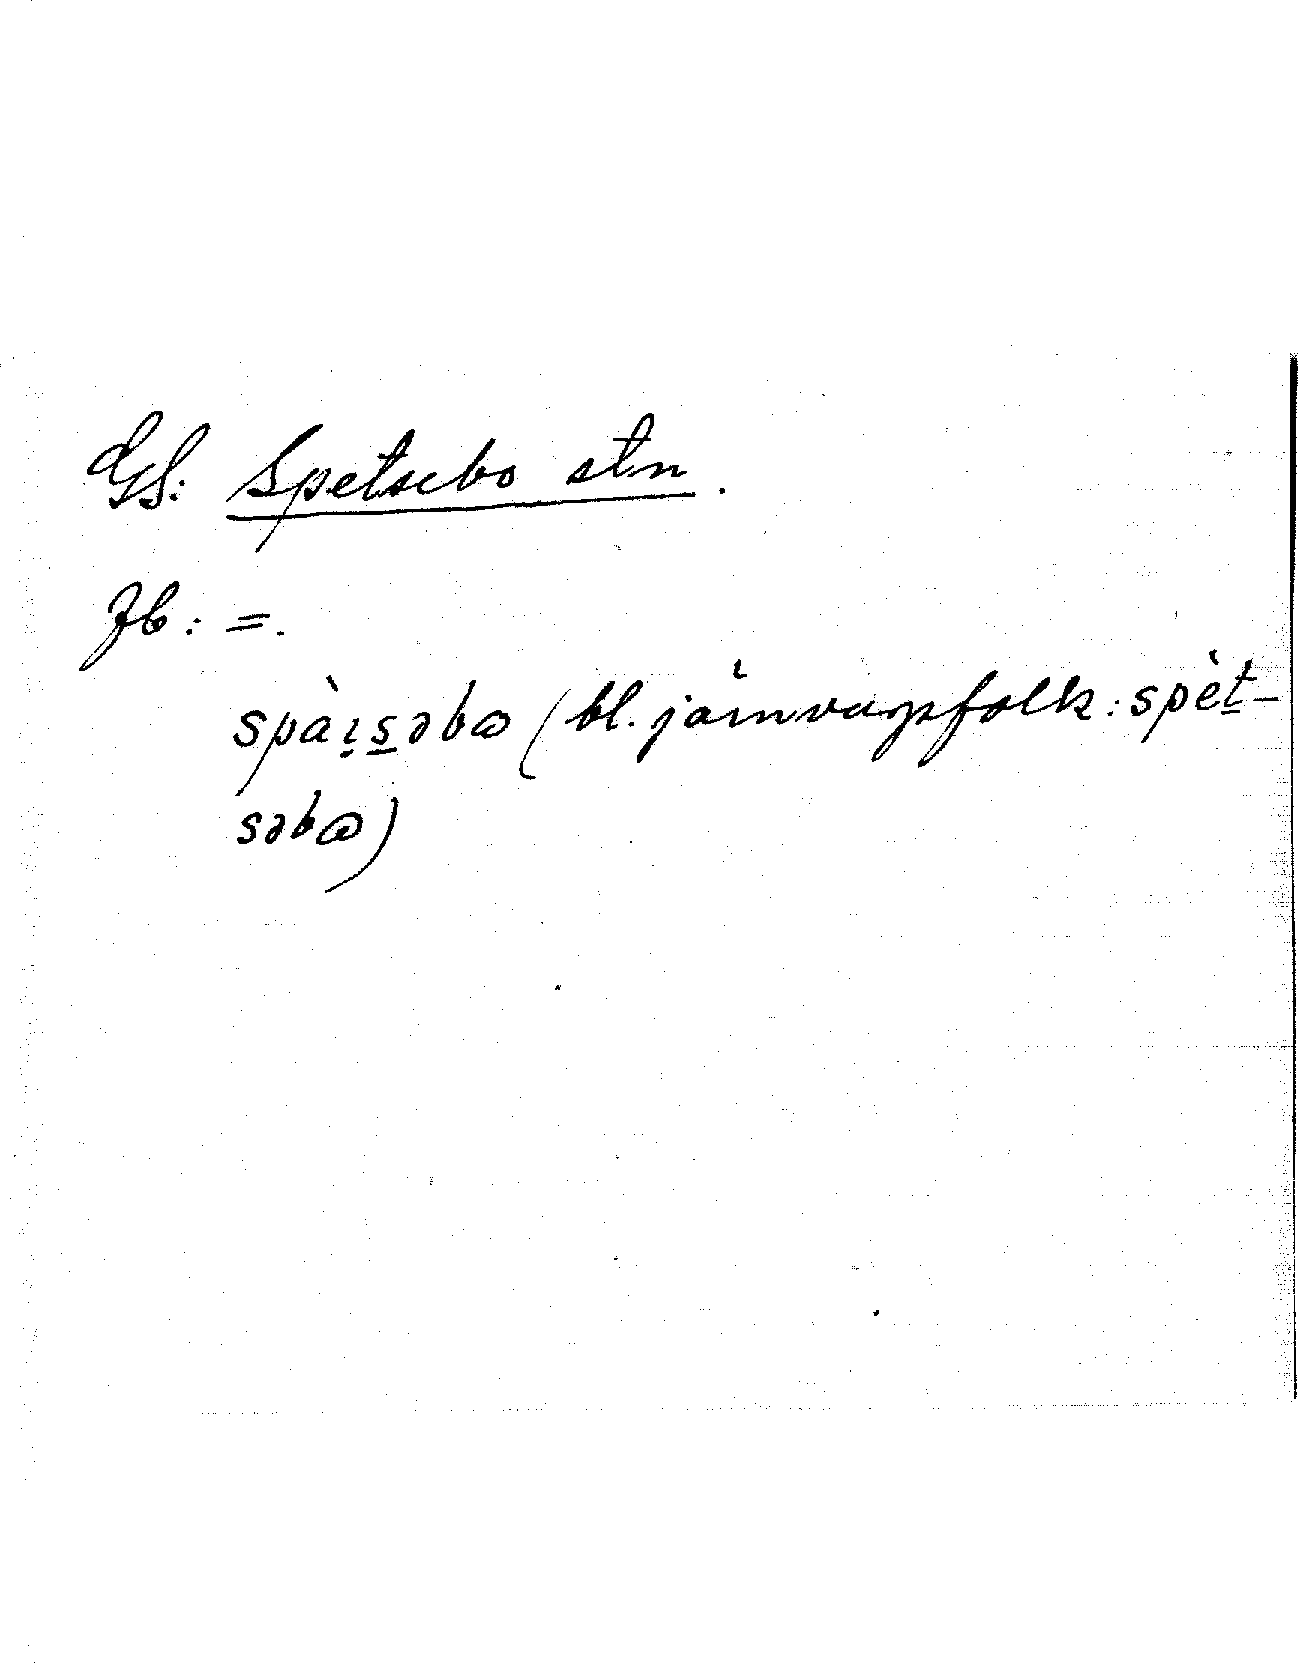 GS: Spetsebo stn.
Jb: =.
spàı̣s̲əbɷ (bl. järnvagsfolk: spèt̲-
səbɷ)